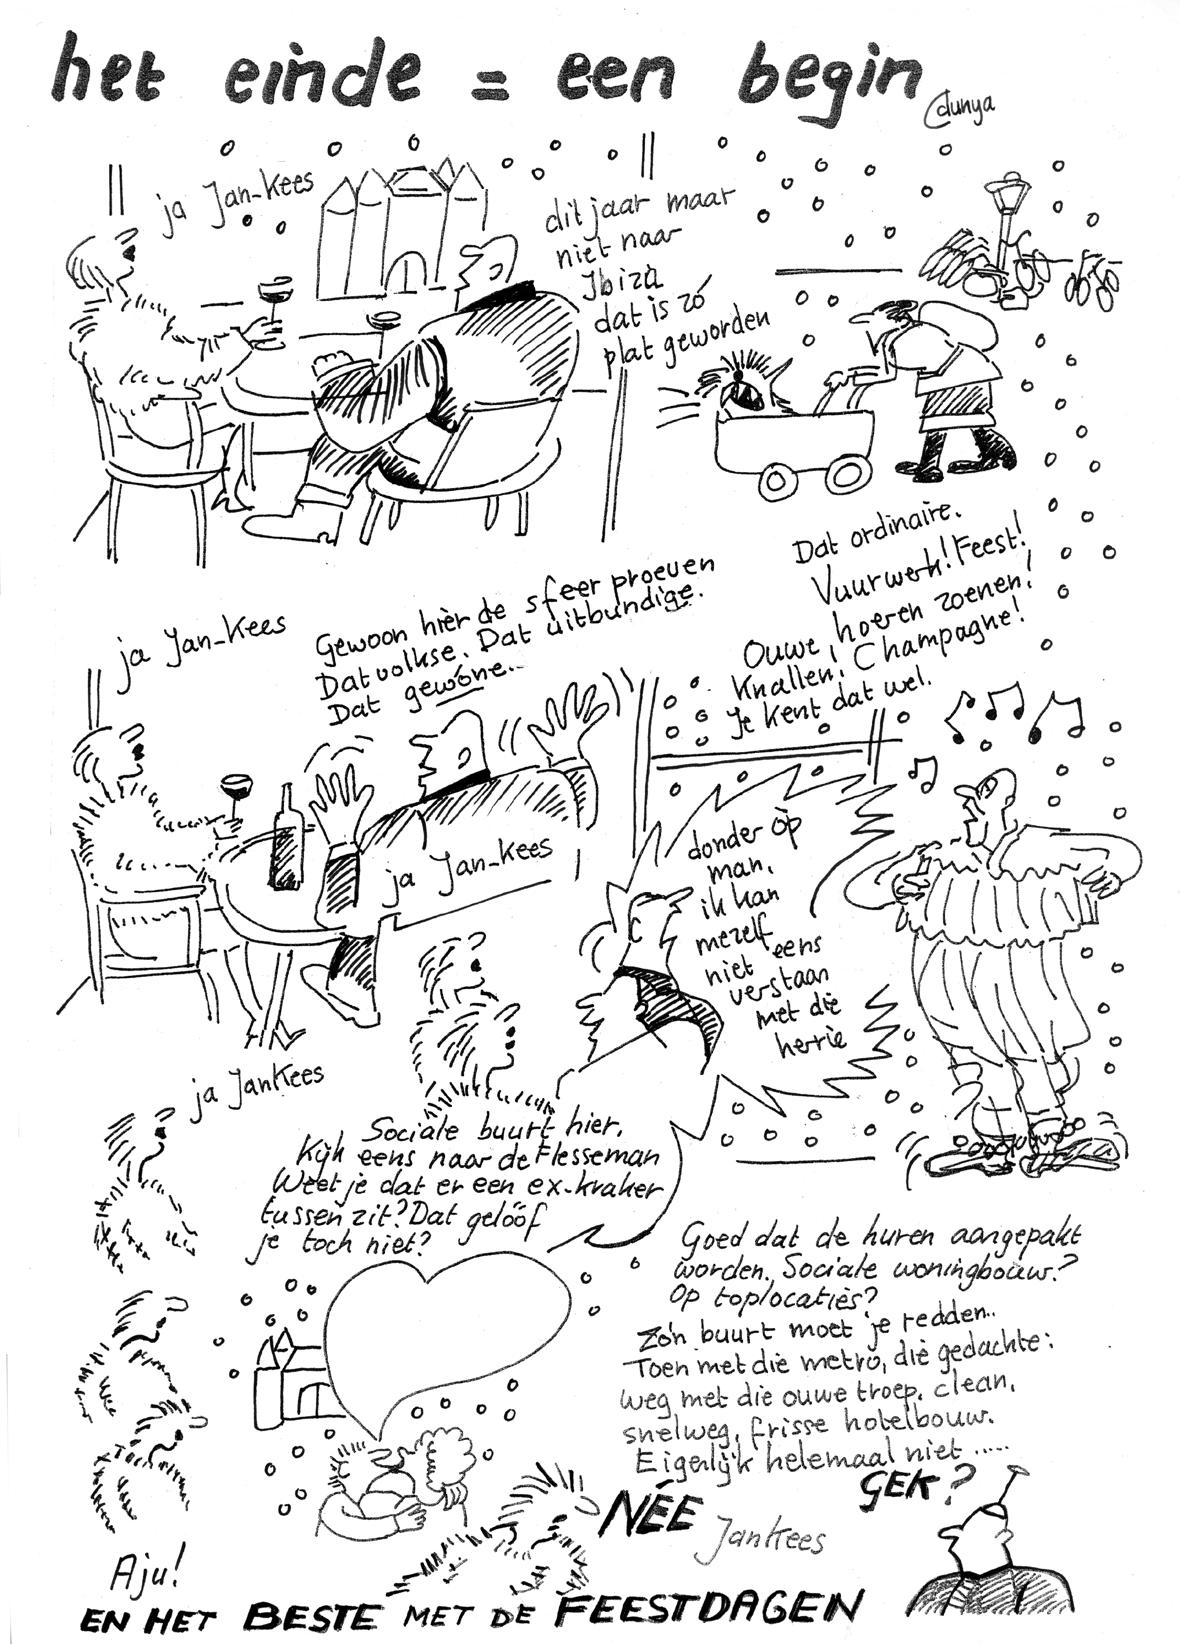 het einde = een begin
dunya
ja Jan-Kees
dit jaar maar
niet naar
Ibiza
dat is zó
plat geworden
ja Jan-Kees
Gewoon hièr de sfeer proeven
Dat volkse. Dat uitbundige.
Dat gewóne...
Dat ordinaire.
Vuurwerk! Feest!
Ouwe hoeren zoenen!
Knallen! Champagne!
Je kent dat wel.
ja Jan-Kees
donder òp
man,
ik kan
mezelf
niet eens
verstaan
met die
herrie
ja JanKees
Sociale buurt hier.
Kijk eens naar de Flesseman
Weet je dat er een ex-kraker
tussen zit? Dat gelóóf
je toch niet?
Goed dat de huren aangepakt
worden. Sociale woningbouw?
Op toplocaties?
Zo'n buurt moet je redden..
Toen met die metro, die gedachte:
weg met die ouwe troep, clean,
snelweg, frisse hotelbouw.
Eigenlijk helemaal niet .....
GEK?
NÉE JanKees
Aju!
EN HET BESTE MET DE FEESTDAGEN